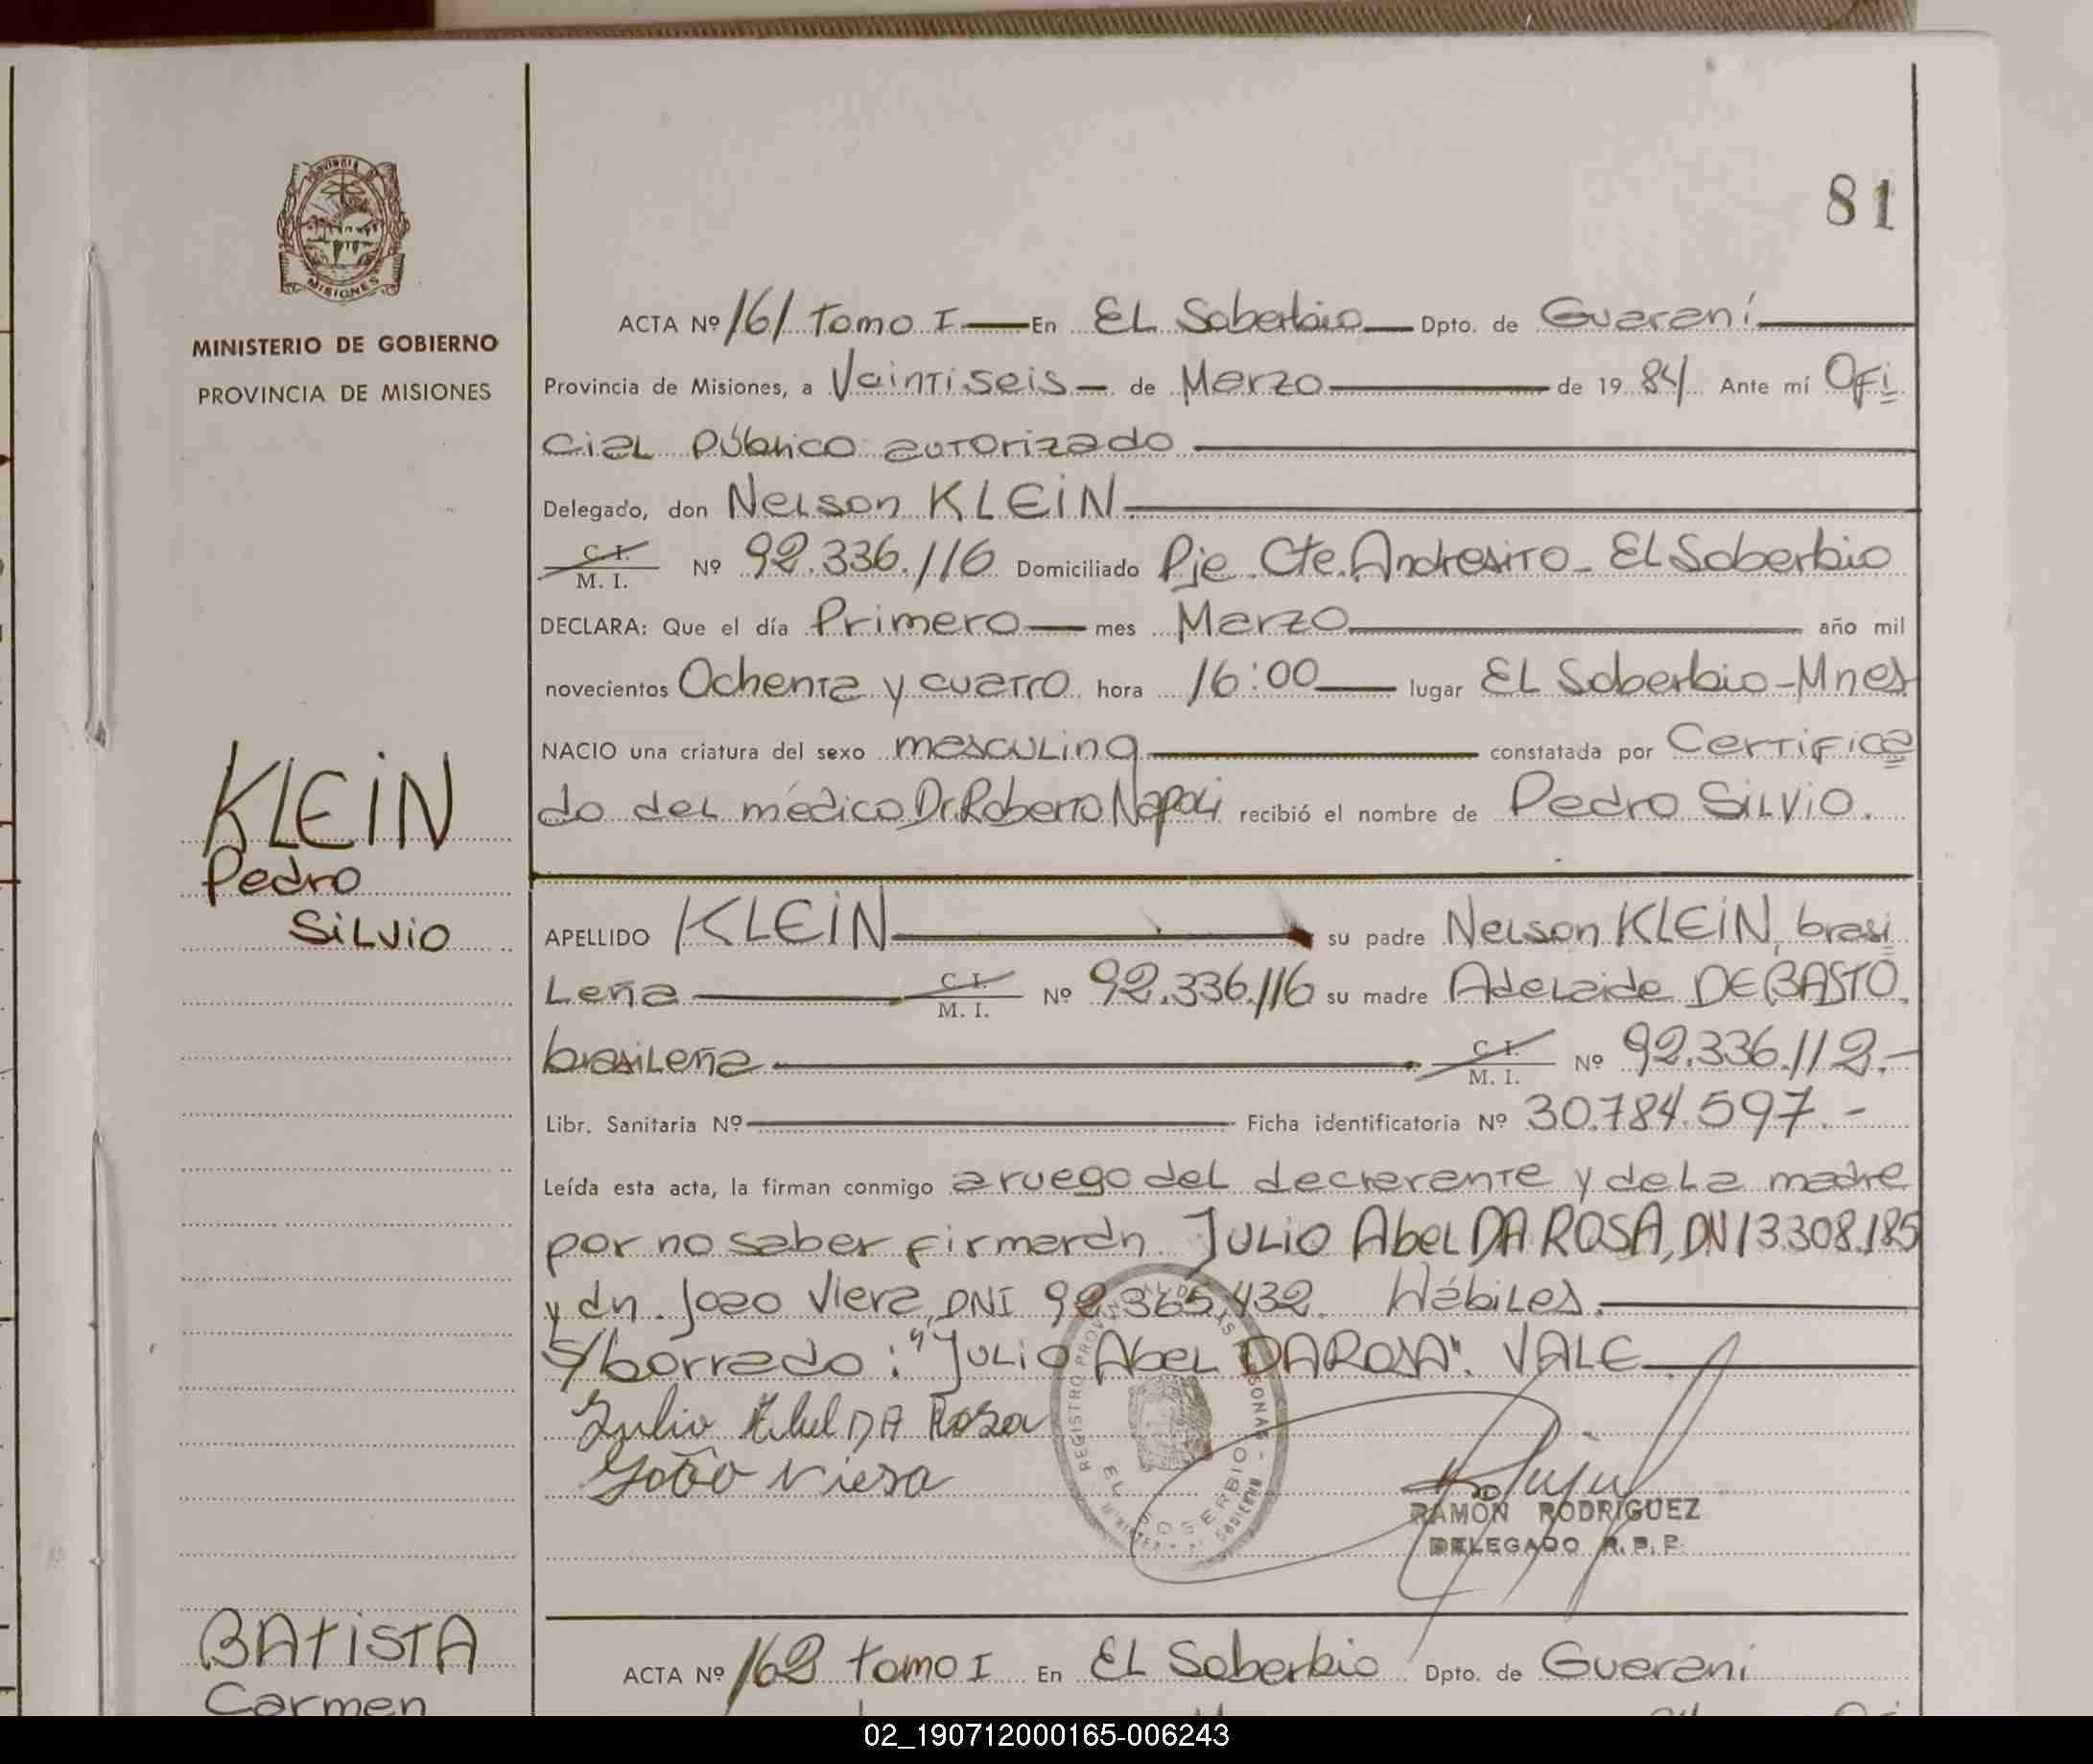 81
PROVINCIA DE
MISIONES
MINISTERIO DE GOBIERNO
PROVINCIA DE MISIONES
KLEIN
Pedro
Silvio
ACTA Nº 161 Tomo I En El Soberbio Dpto. de Guaraní
Provincia de Misiones, a Veintiseis de Marzo de 19 84 Ante mí Ofi
cial Público autorizado
Delegado, don Nelson KLEIN
C. I.
M. I. Nº 92.336.116 Domiciliado Pje Cte. Andresito - El Soberbio
DECLARA: Que el día Primero mes Marzo año mil
novecientos Ochenta y cuatro hora 16:00 lugar El Soberbio - Mnes
NACIO una criatura del sexo masculino constatada por Certifica
do del médico Dr. Roberto Napoli recibió el nombre de Pedro Silvio.
APELLIDO KLEIN su padre Nelson KLEIN, brasi
leña C. I.
M. I. Nº 92.336.116 su madre Adelaide DE BASTO,
brasileña C. I.
M. I. Nº 92.336.112.-
Libr. Sanitaria Nº Ficha identificatoria Nº 30.784.597.-
Leída esta acta, la firman conmigo a ruego del declarante y de la madre
por no saber firmar dn. Julio Abel DA ROSA, DNI 3.308.185
y dn. Joao Viera, DNI 92.365.432. Hábiles.
S/borrado: "Julio Abel DA ROSA". VALE
Julio Abel DA Rosa
João Viera
REGISTRO PROVINCIAL DE LAS PERSONAS
EL SOBERBIO
RAMÓN RODRIGUEZ
DELEGADO R. P. P.
BATISTA
Carmen
ACTA Nº 162 Tomo I En El Soberbio Dpto. de Guarani
02_190712000165-006243